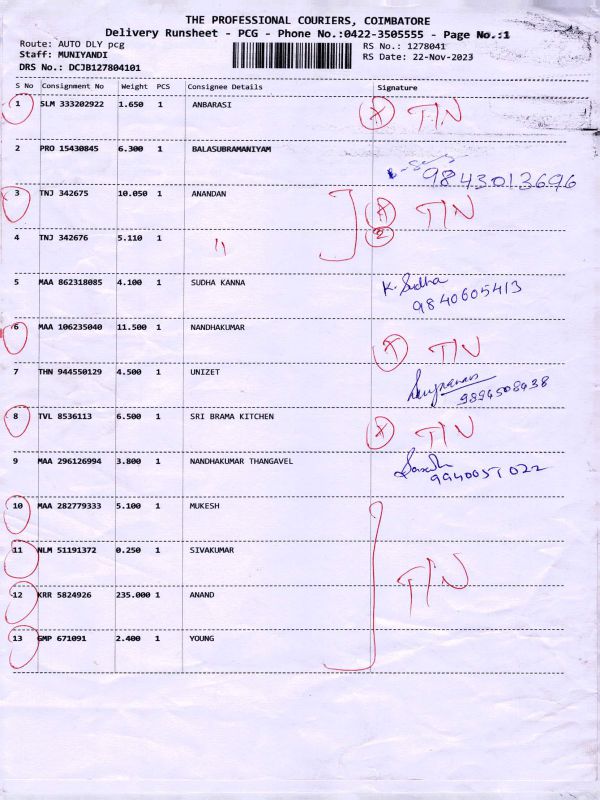 THE PROFESSIONAL COURIERS, COIMBATORE
Delivery Runsheet - PCG - Phone No.:0422-3505555 - Page No.:1
Route: AUTO DLY pcg RS No.: 1278041
Staff: MUNIYANDI RS Date: 22-Nov-2023
DRS No.: DCJB127804101
S No Consignment No Weight PCS Consignee Details Signature
1 SLM 333202922 1.650 1 ANBARASI T/N
2 PRO 15430845 6.300 1 BALASUBRAMANIYAM
9843013696
3 TNJ 342675 10.050 1 ANANDAN T/N
4 TNJ 342676 5.110 1 " 2
5 MAA 862318085 4.100 1 SUDHA KANNA K. Sudha
9840605413
6 MAA 106235040 11.500 1 NANDHAKUMAR T/N
7 THN 944550129 4.500 1 UNIZET
9894508438
8 TVL 8536113 6.500 1 SRI BRAMA KITCHEN T/N
9 MAA 296126994 3.800 1 NANDHAKUMAR THANGAVEL
9940051022
10 MAA 282779333 5.100 1 MUKESH
11 NLM 51191372 0.250 1 SIVAKUMAR
T/N
12 KRR 5824926 235.000 1 ANAND
13 GMP 671091 2.400 1 YOUNG